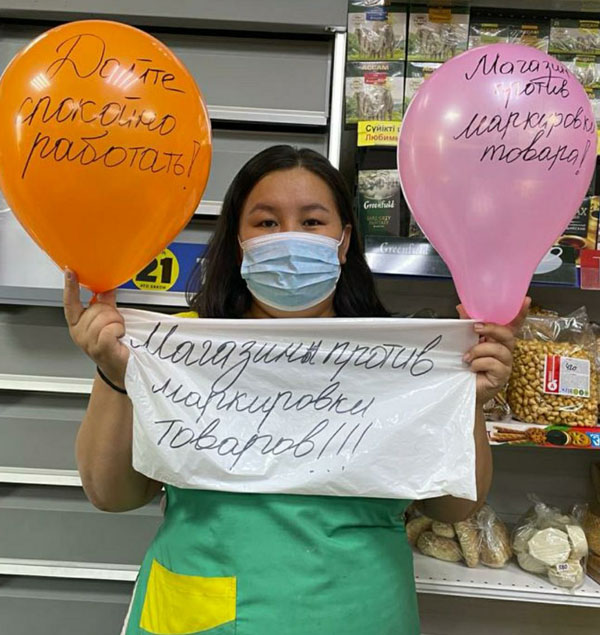 Дайте
спокойно
работать!
Магазин
против
маркировки
товара!
Магазины против
маркировки
товаров!!!
Сүйікті
Любимы
Greenfield
21